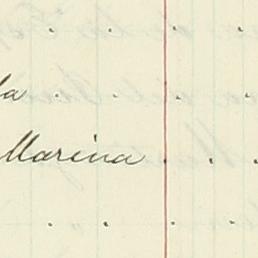 la . . . .
Marina . . .